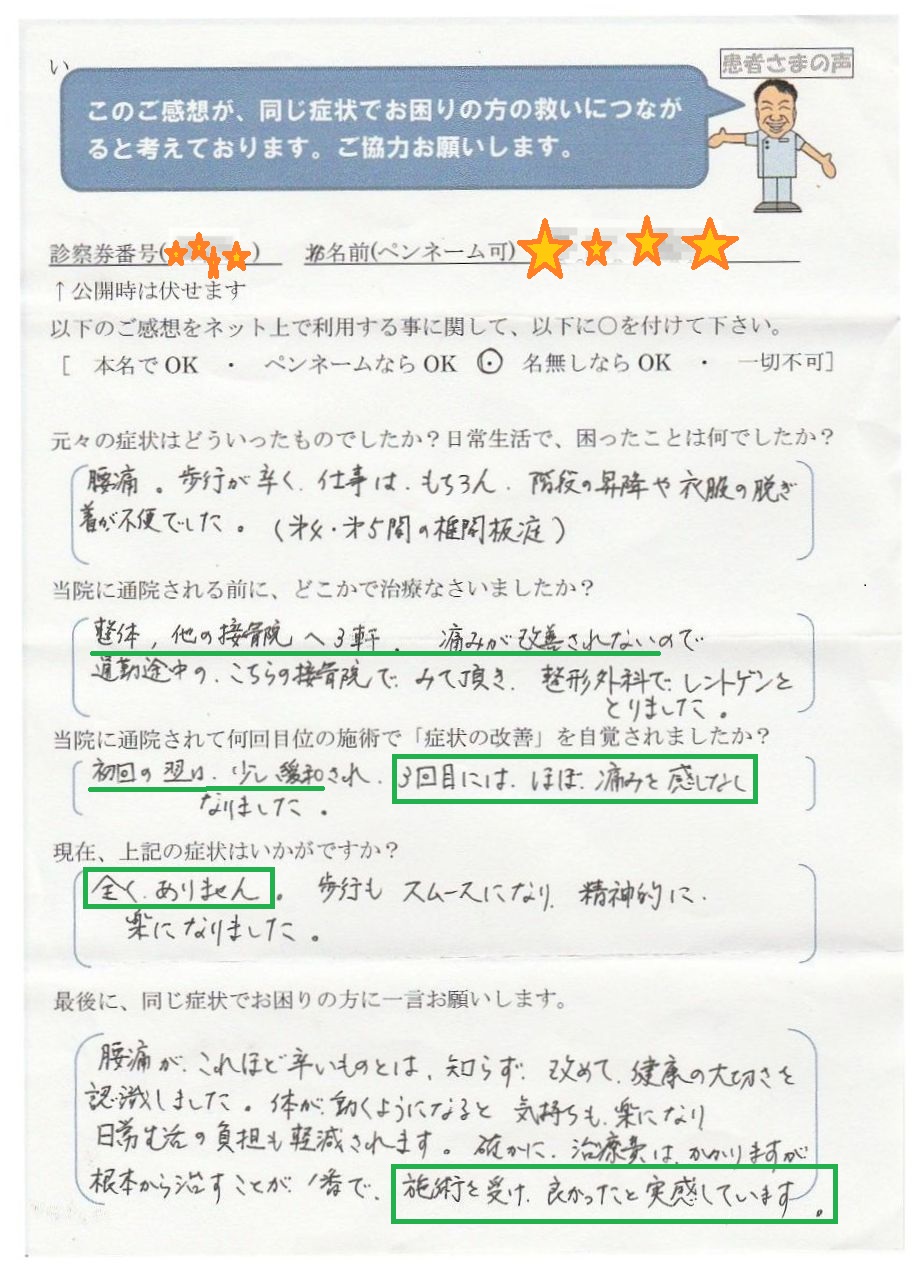 い
患者さまの声
このご感想が、同じ症状でお困りの方の救いにつなが
ると考えております。ご協力お願いします。
診察券番号( ) お名前(ペンネーム可)
↑公開時は伏せます
以下のご感想をネット上で利用する事に関して、以下に○を付けて下さい。
[ 本名でOK ・ ペンネームならOK ・ 名無しならOK ・ 一切不可]
元々の症状はどういったものでしたか？日常生活で、困ったことは何でしたか？
腰痛。歩行が辛く、仕事は、もちろん、階段の昇降や衣服の脱ぎ
着が不便でした。(第4・第5間の椎間板症)
当院に通院される前に、どこかで治療なさいましたか？
整体，他の接骨院へ3軒、痛みが改善されないので
通勤途中の、こちらの接骨院で、みて頂き、整形外科でレントゲンを
とりました。
当院に通院されて何回目位の施術で「症状の改善」を自覚されましたか？
初回の翌日、少し緩和され、3回目には、ほぼ、痛みを感じなし
なりました。
現在、上記の症状はいかがですか？
全く、ありません。歩行もスムースになり、精神的に、
楽になりました。
最後に、同じ症状でお困りの方に一言お願いします。
腰痛が、これほど辛いものとは、知らず、改めて、健康の大切さを
認識しました。体が動くようになると気持ちも、楽になり
日常生活の負担も軽減されます。確かに、治療費は、かかりますが
根本から治すことが、1番で、施術を受け、良かったと実感しています。